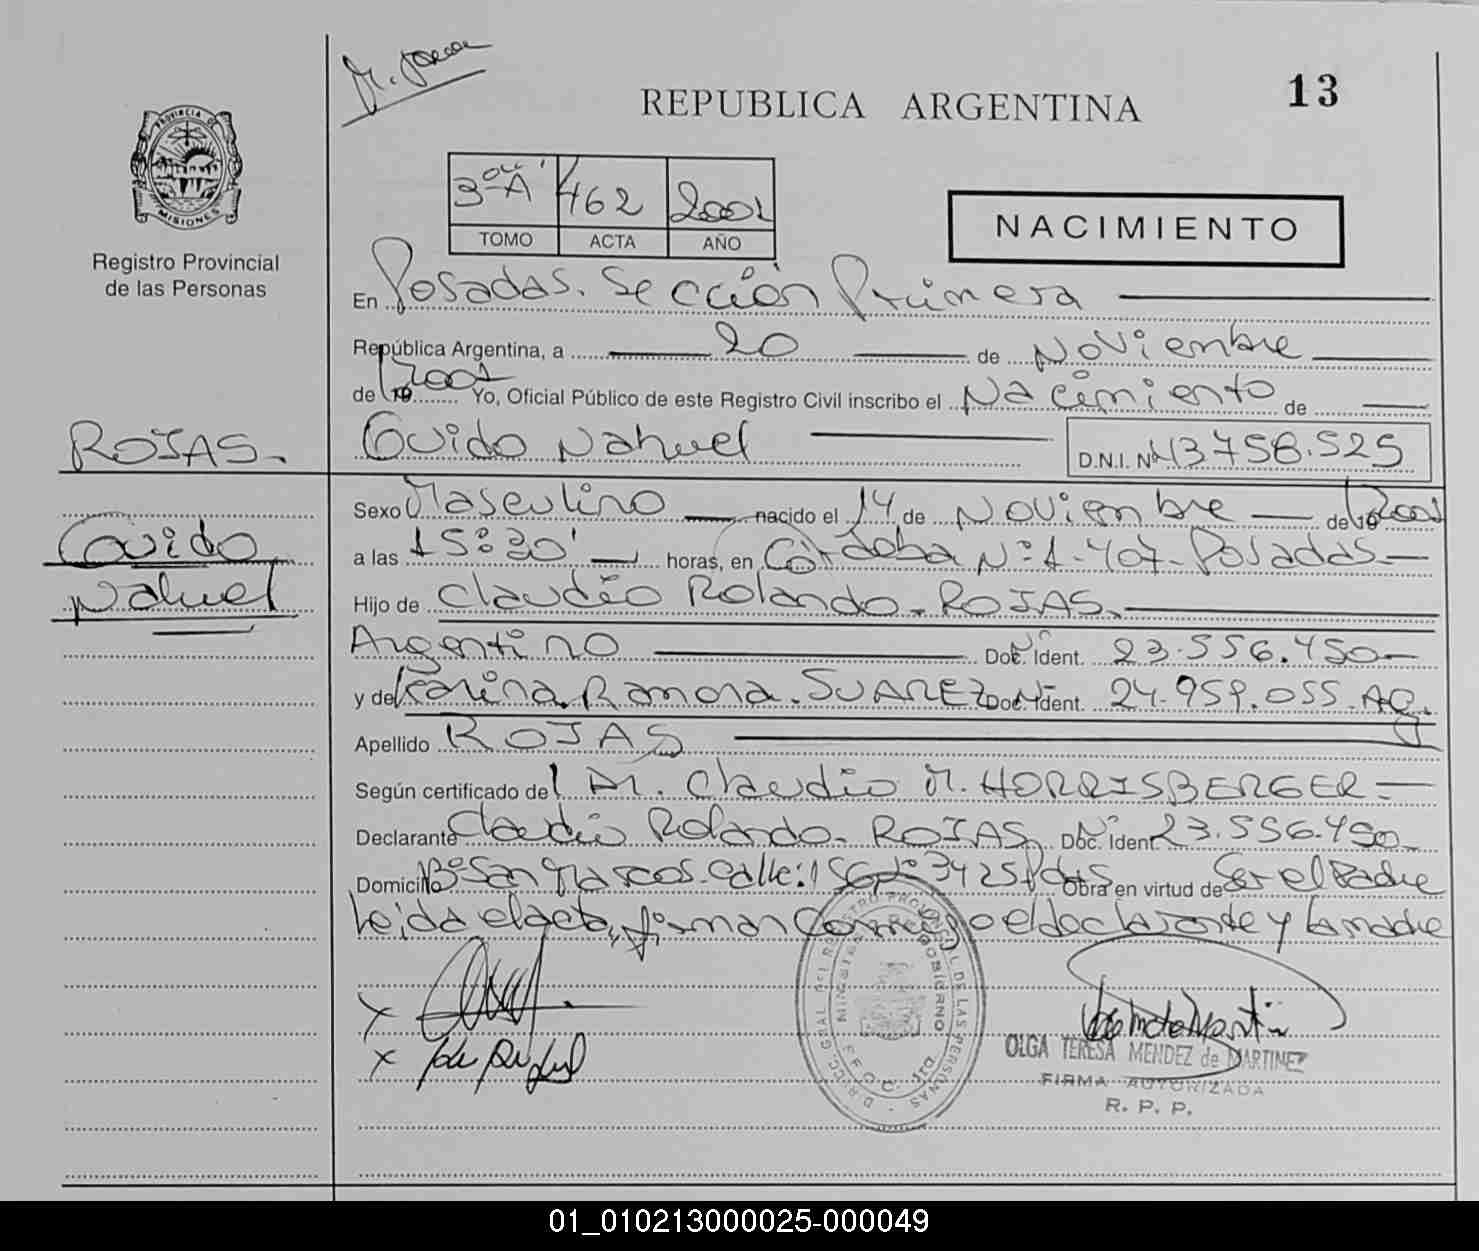 REPUBLICA ARGENTINA
13
PROVINCIA DE
MISIONES
Registro Provincial
de las Personas
3º A 462 2001
TOMO ACTA AÑO
NACIMIENTO
En Posadas. Sección Primera
República Argentina, a 20 de Noviembre
de 2001 Yo, Oficial Público de este Registro Civil inscribo el Nacimiento de
ROJAS.
Guido Nahuel
D.N.I. Nº 43758.525
Guido
Nahuel
Sexo Masculino nacido el 14 de Noviembre de 2001
a las 15:30' horas, en Córdoba Nº 1.407- Posadas
Hijo de Claudio Rolando. ROJAS.
Argentino Doc. Nº Ident. 23.556.450
y de Karina Ramona. SUAREZ Doc. Nº Ident. 24.959.055. AG.
Apellido ROJAS
Según certificado del Dr. Claudio M. HORRISBERGER
Declarante Claudio Rolando. ROJAS Doc. Nº Ident 23.556.450
Domicilio Bº San Marcos. Calle: 156 Nº 3425 Pdas Obra en virtud de Ser el Padre
Leida el acta, firman conmigo el declarante y la madre
OLGA TERESA MENDEZ de MARTINEZ
FIRMA AUTORIZADA
R. P. P.
01_010213000025-000049